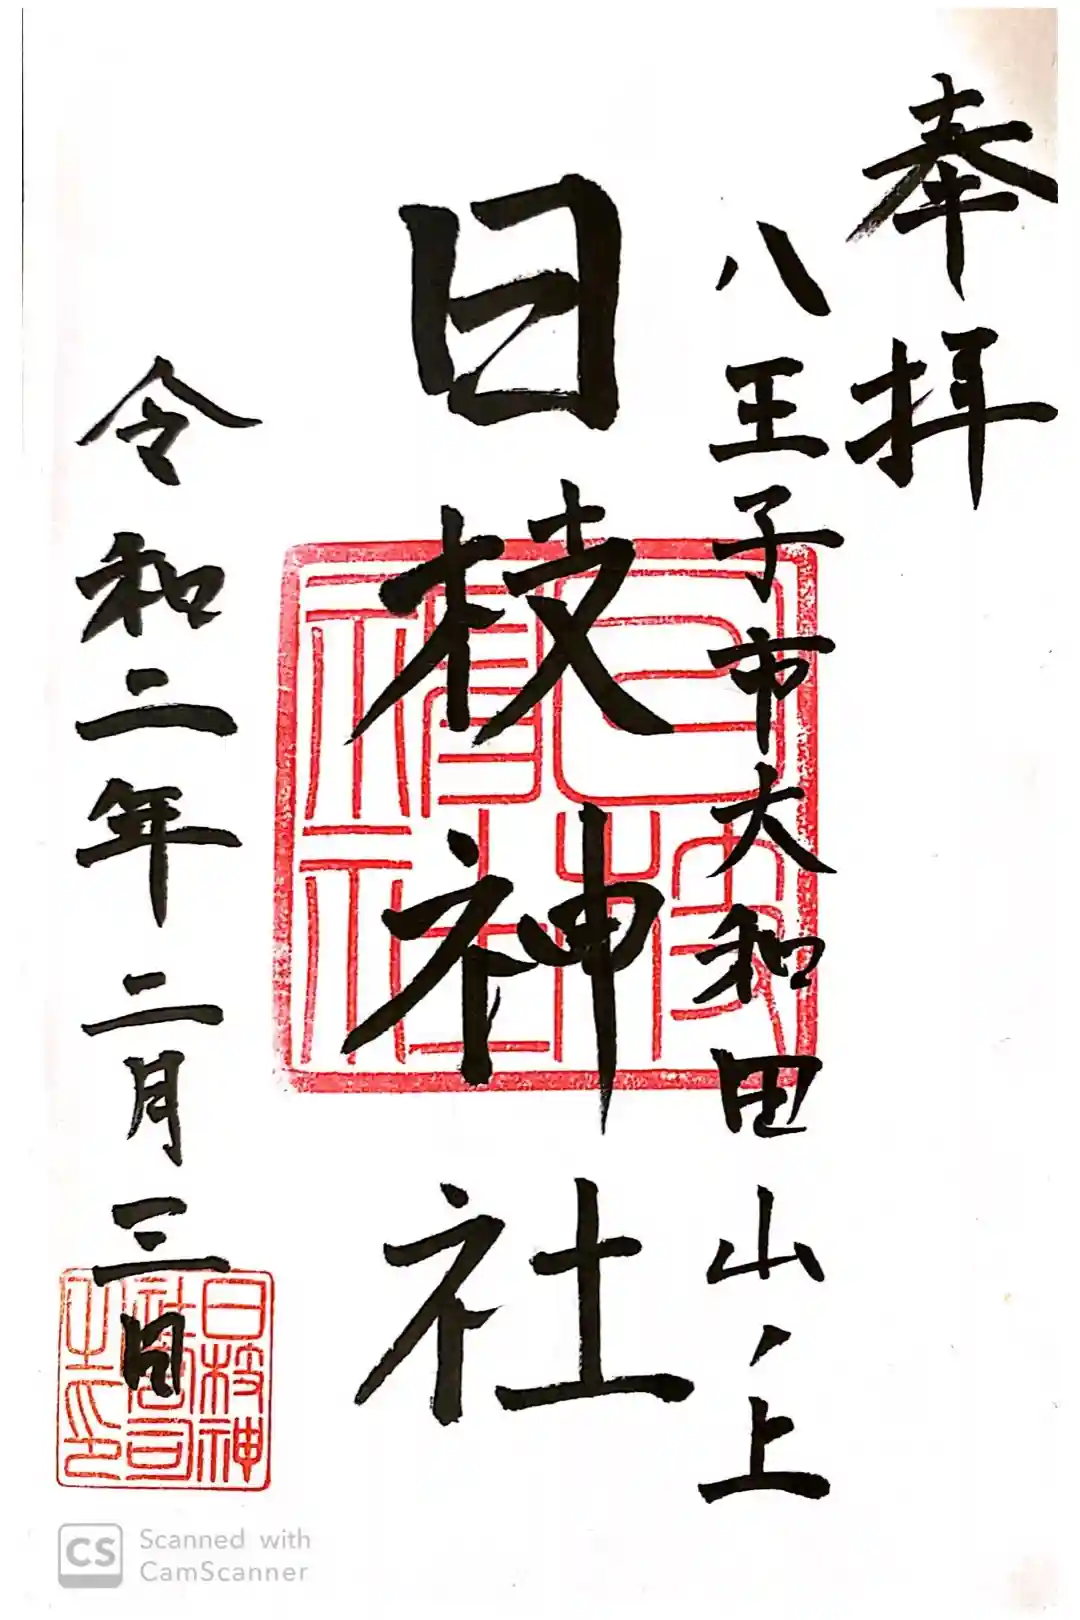 奉拝
八王子市大和田山ノ上
日枝神社
令和二年二月三日
日枝神
社宮司
之印
Scanned with
CamScanner